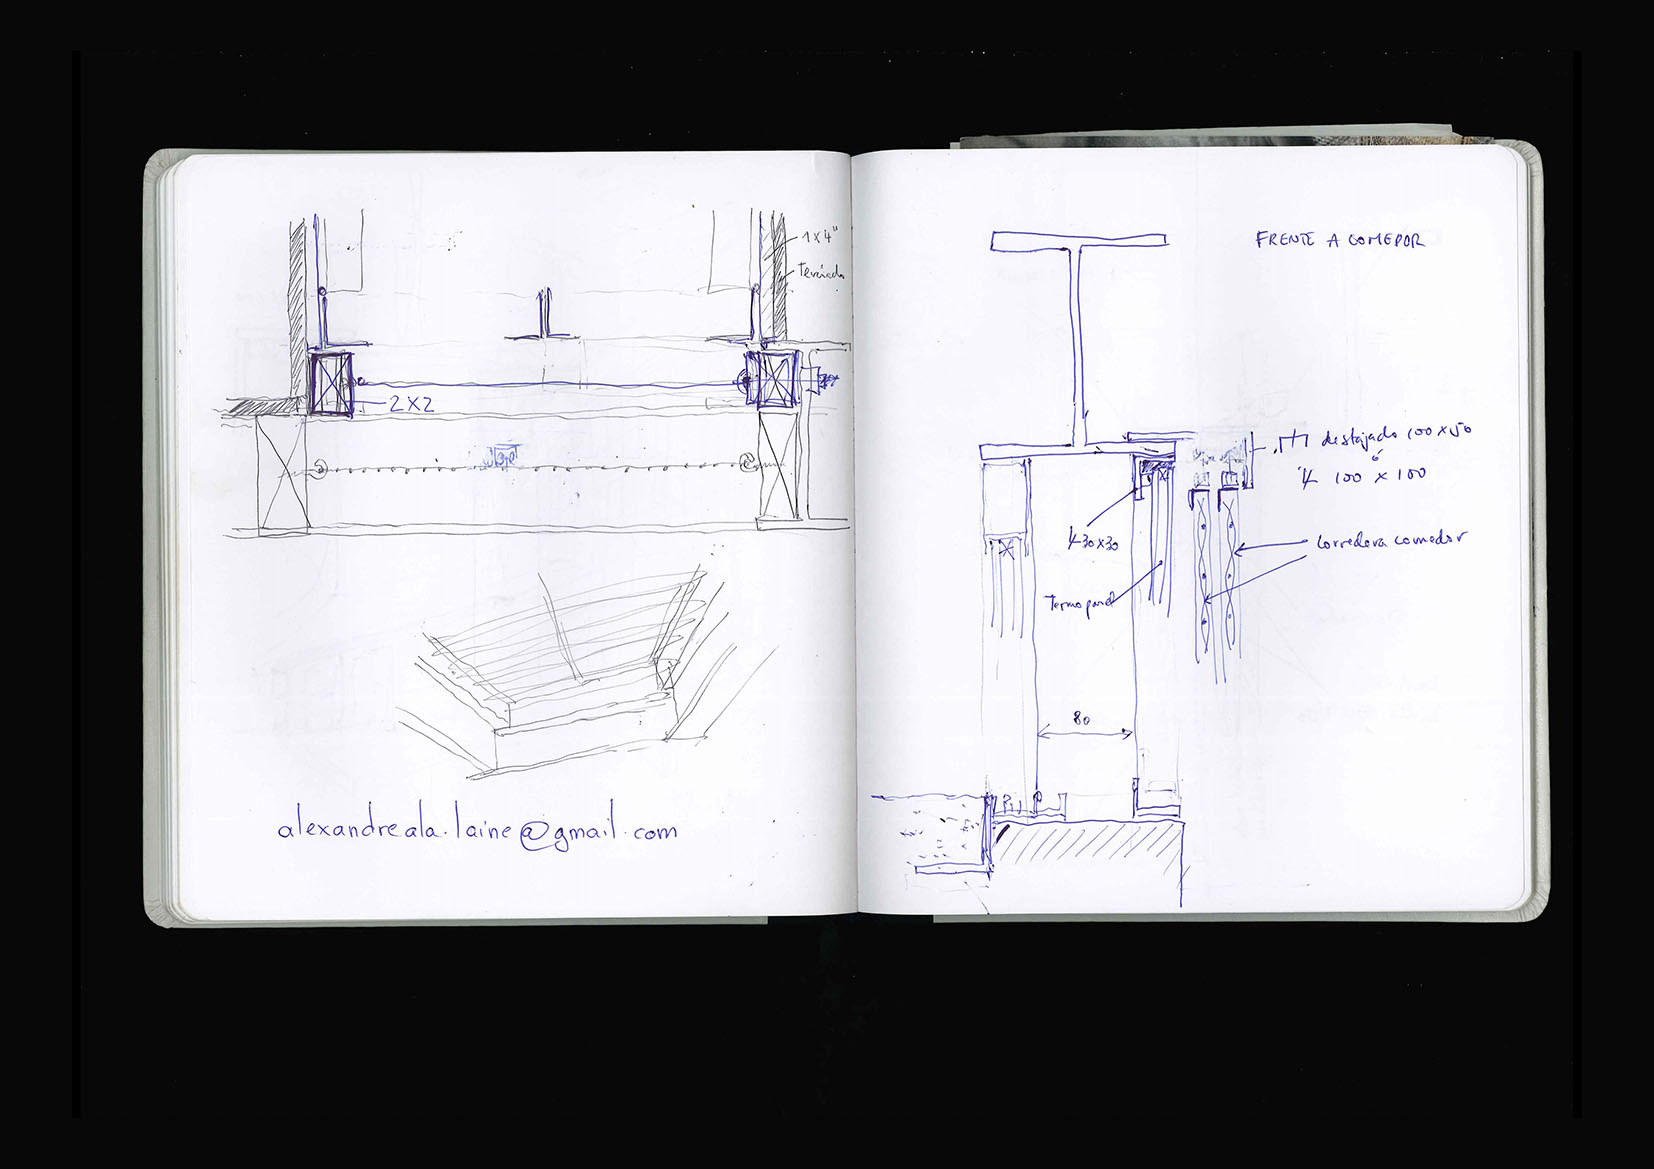 1x4"
Terciado
2x2
alexandreala.laine@gmail.com
FRENTE A COMEDOR
destajado 100x50
ó
100 x 100
30x30
Termopanel
corredera comedor
80